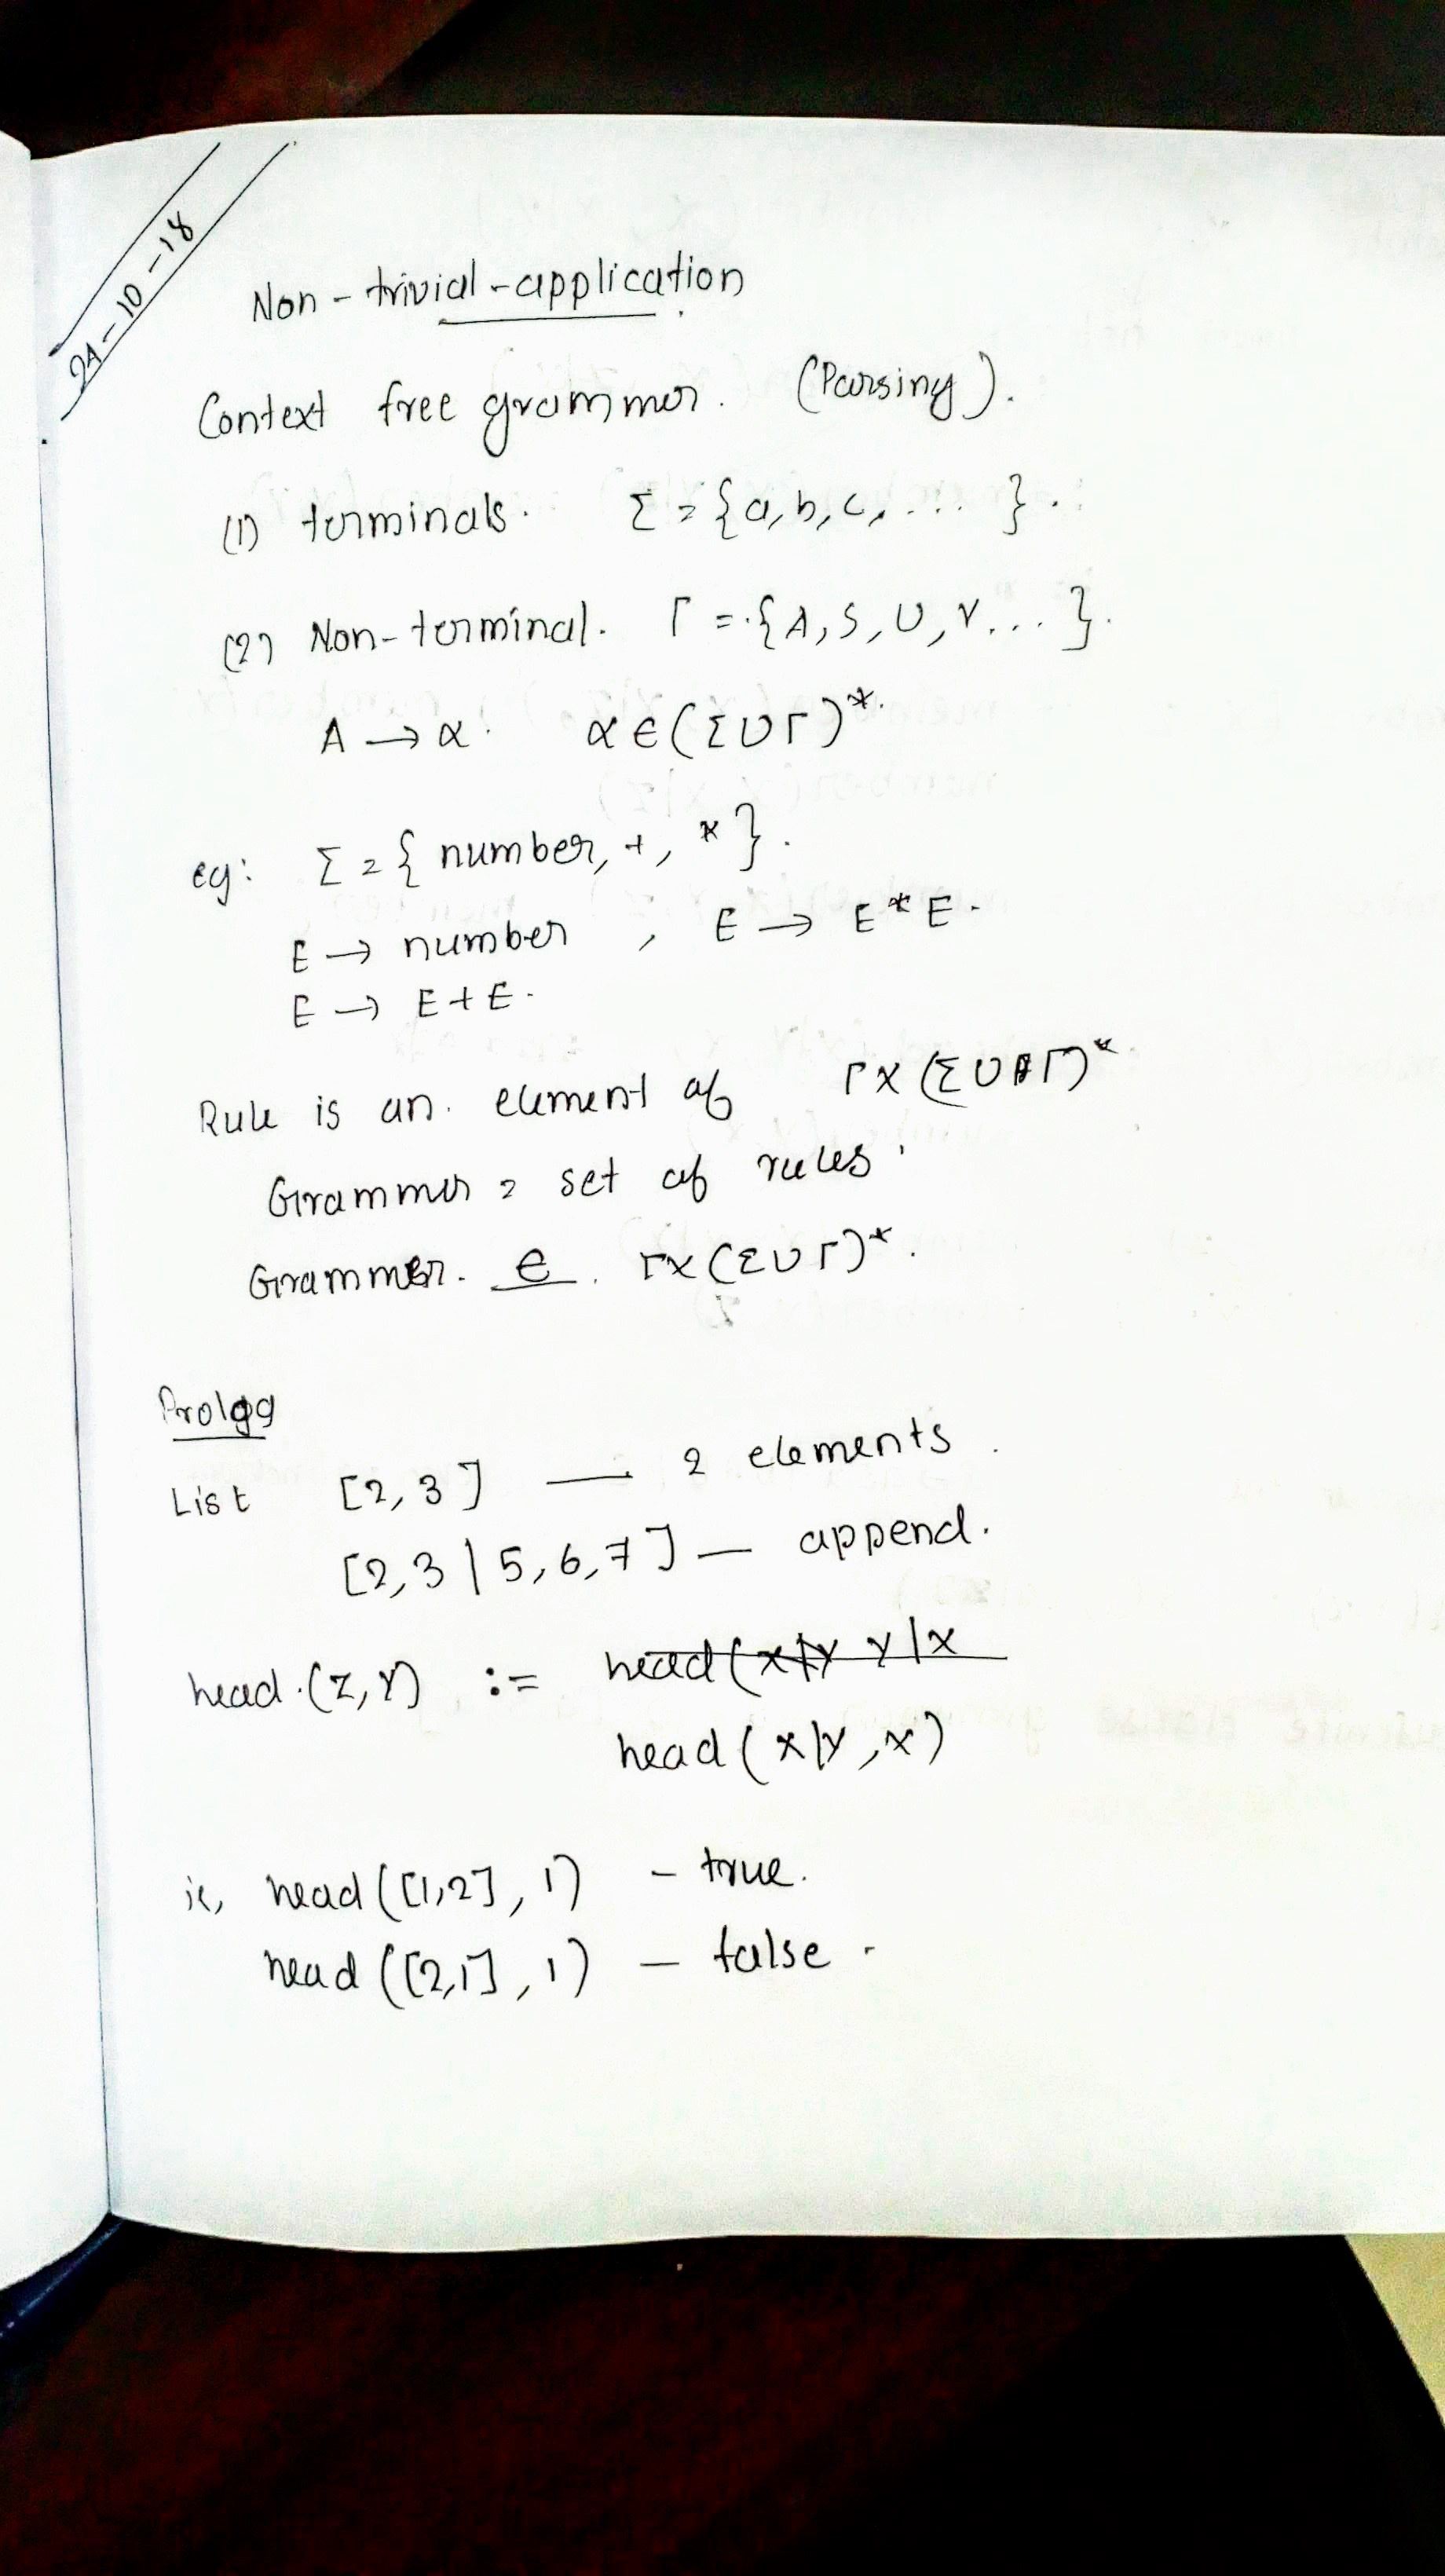 24-10-18
Non-trivial-application.
Context free grammer. (Parsing).
(1) terminals. Σ = {a, b, c, .... }.
(2) Non-terminal. Γ = {A, S, U, V... }.
A → α. α ∈ (Σ ∪ Γ)*.
eg: Σ = { number, +, * }.
E → number , E → E * E.
E → E + E.
Rule is an. element of Γ × (Σ ∪ Γ)*
Grammer = set of rules.
Grammer. e. Γ × (Σ ∪ Γ)*.
Prolog
List [2, 3] — 2 elements.
[2, 3 | 5, 6, 7] — append.
head.(Z, Y) := head (x|y y|x
head (x|y, x)
ie, head ([1,2], 1) - true.
head ([2,1], 1) - false.